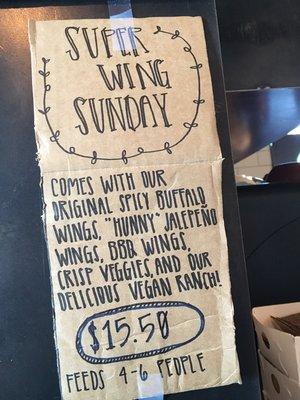 SUPER
WING
SUNDAY
COMES WITH OUR
ORIGINAL SPICY BUFFALO
WINGS, "HUNNY" JALEPEÑO
WINGS, BBQ WINGS,
CRISP VEGGIES, AND OUR
DELICIOUS VEGAN RANCH!
$15.50
FEEDS 4-6 PEOPLE